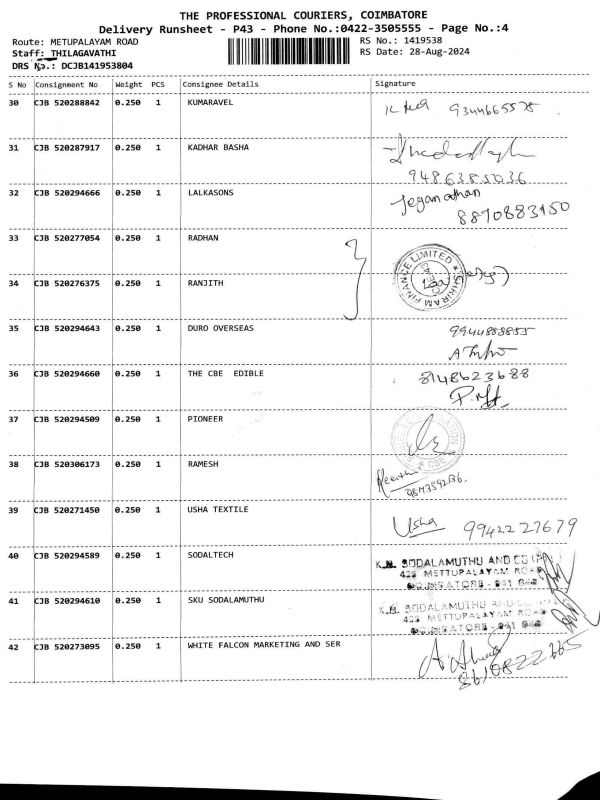 THE PROFESSIONAL COURIERS, COIMBATORE
Delivery Runsheet - P43 - Phone No.:0422-3505555 - Page No.:4
Route: METUPALAYAM ROAD RS No.: 1419538
Staff: THILAGAVATHI RS Date: 28-Aug-2024
DRS No.: DCJB141953804
S No Consignment No Weight PCS Consignee Details Signature
30 CJB 520288842 0.250 1 KUMARAVEL 9344665575
31 CJB 520287917 0.250 1 KADHAR BASHA
9486385036
32 CJB 520294666 0.250 1 LALKASONS Jeganathan
8870883150
33 CJB 520277054 0.250 1 RADHAN
SHRIRAM FINANCE LIMITED
34 CJB 520276375 0.250 1 RANJITH
35 CJB 520294643 0.250 1 DURO OVERSEAS 9944888855
36 CJB 520294660 0.250 1 THE CBE EDIBLE 8148623688
37 CJB 520294509 0.250 1 PIONEER
CBE
38 CJB 520306173 0.250 1 RAMESH
39 CJB 520271450 0.250 1 USHA TEXTILE Usha 9942227679
40 CJB 520294589 0.250 1 SODALTECH K.N. SODALAMUTHU AND CO
METTUPALAYAM ROAD
41 CJB 520294610 0.250 1 SKU SODALAMUTHU K.N. SODALAMUTHU AND CO
METTUPALAYAM ROAD
42 CJB 520273095 0.250 1 WHITE FALCON MARKETING AND SER